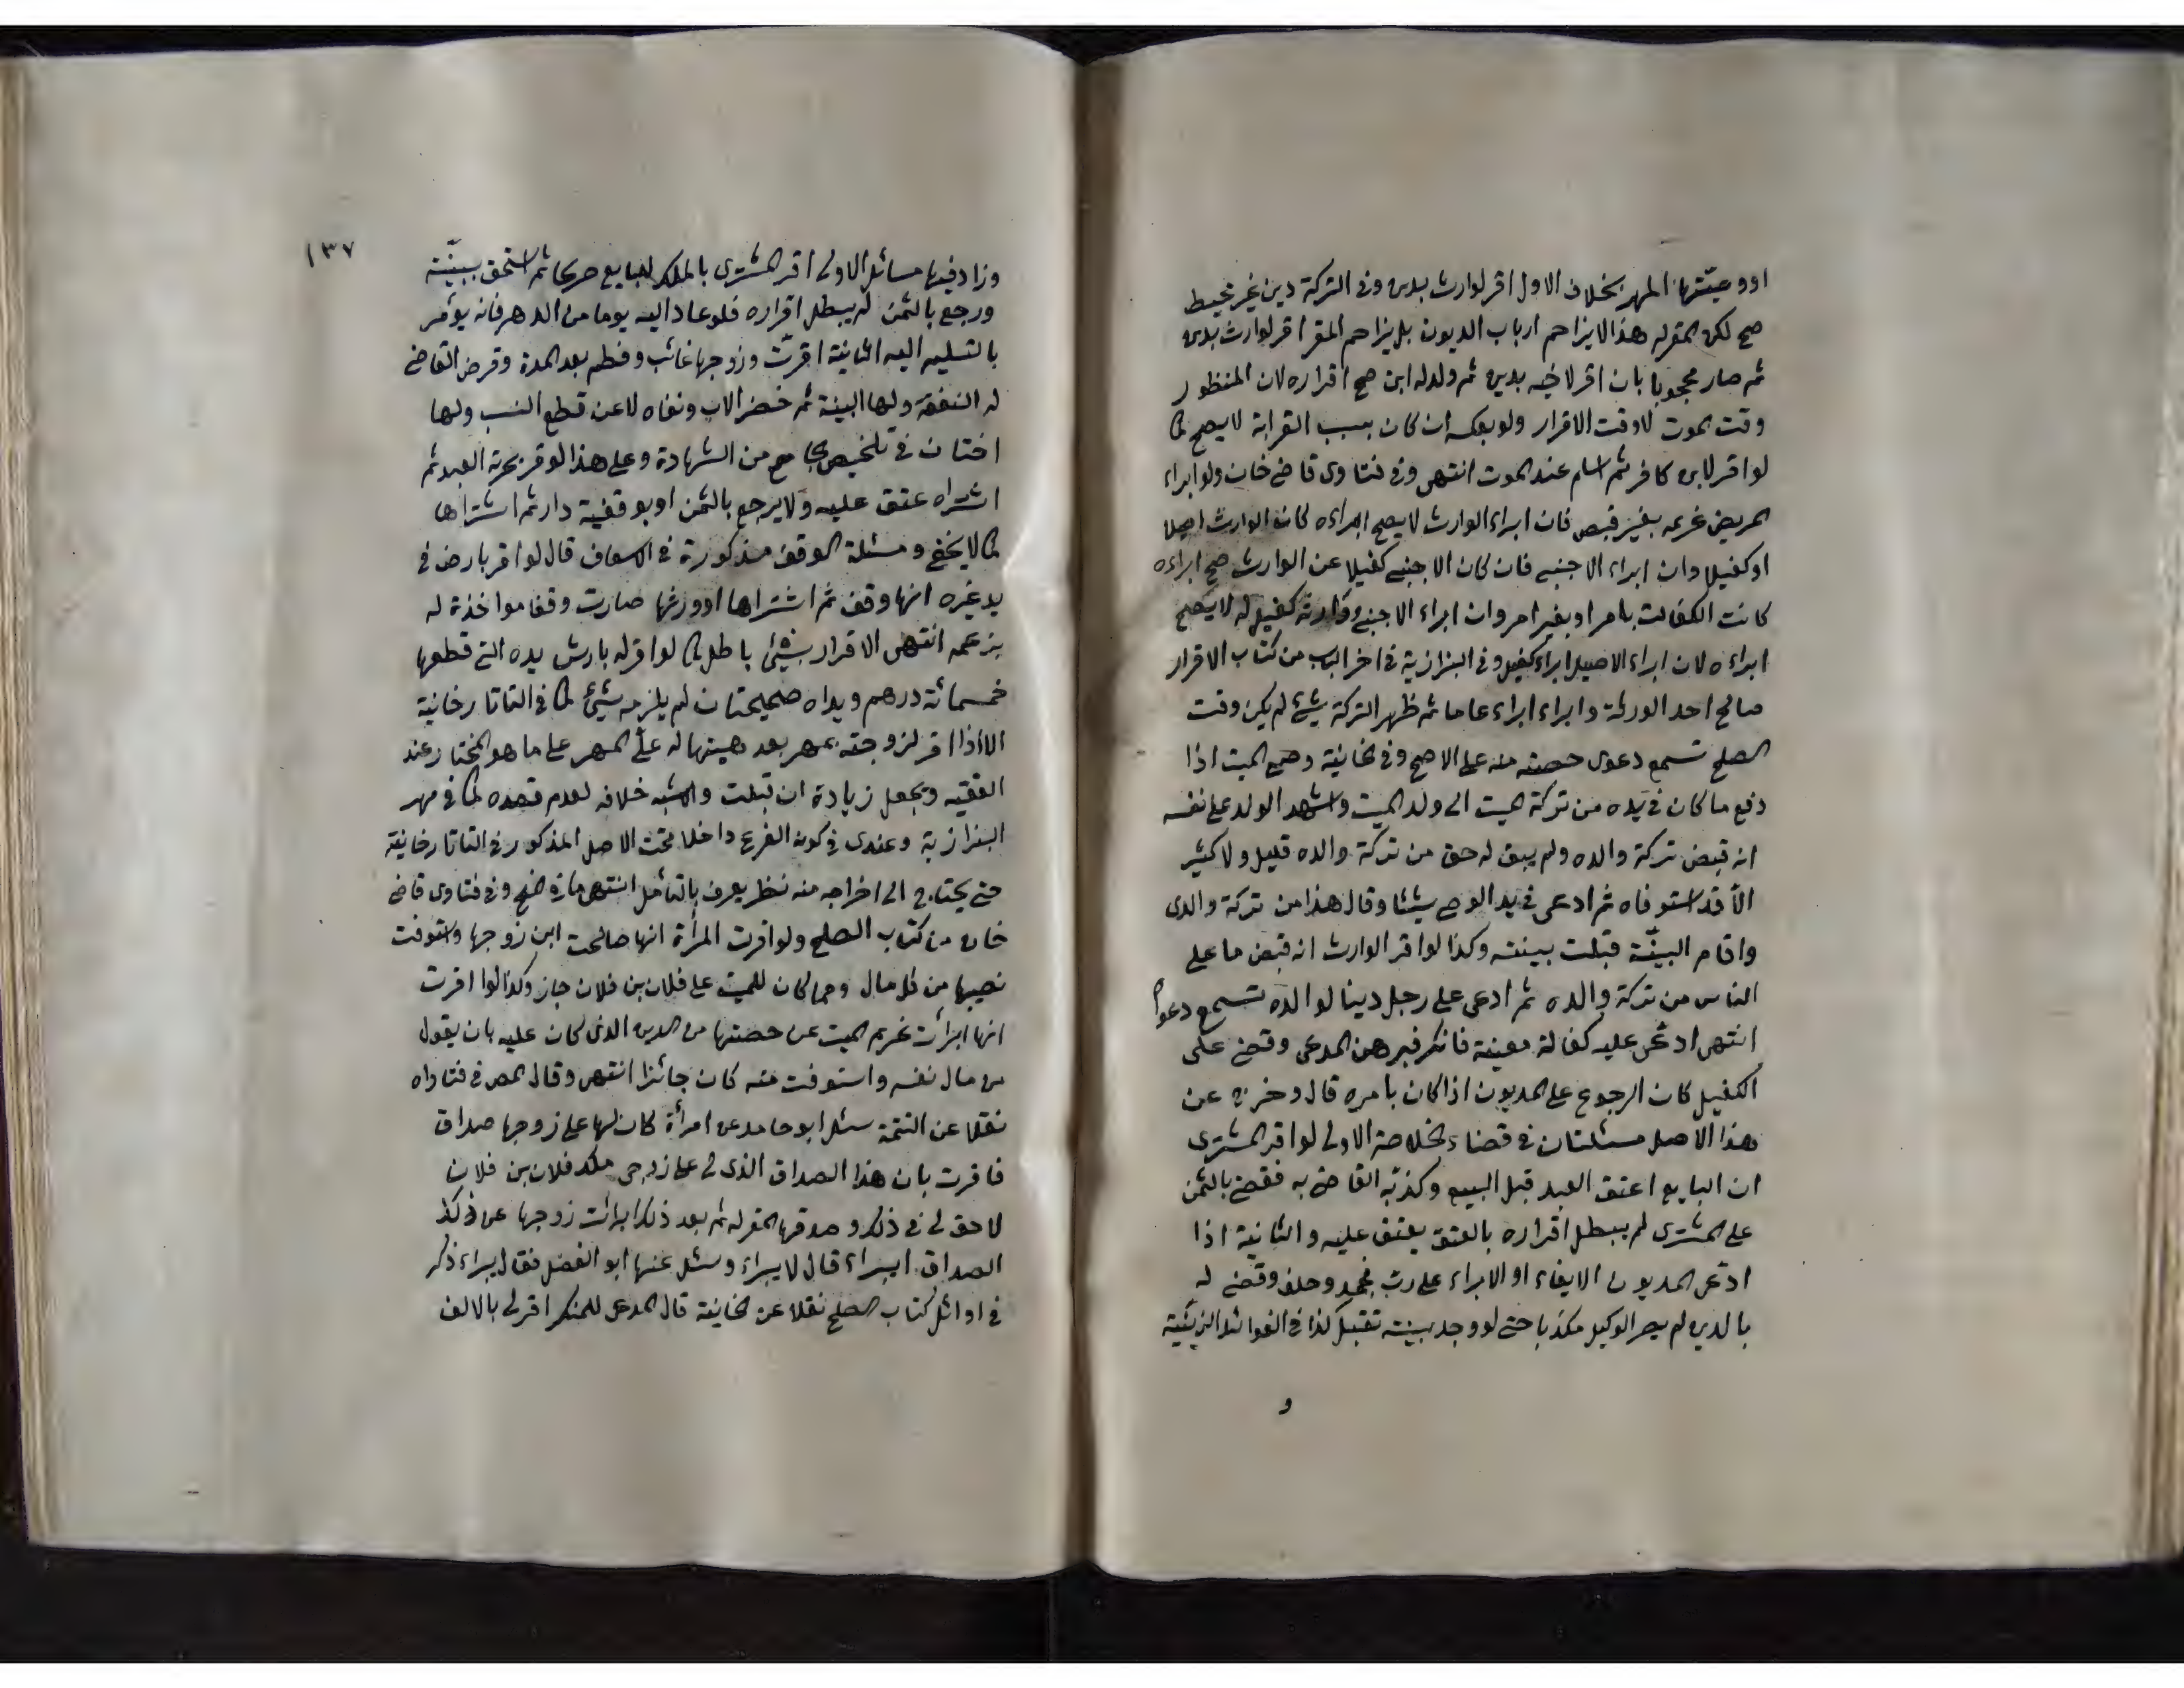 اووصيتها المهر بخلاف الاول اقر لوارث بدين وفى التركة دين غير محيط
صح لكن المقر له هذا لا يزاحم ارباب الديون بل يزاحم المقر اقر لوارث بدين
ثم صار محجوبا بان اقر لاخيه بدين ثم ولد له ابن صح اقراره لان المنظور
وقت الموت لا وقت الاقرار ولو بعكسه ان كان بسبب القرابة لا يصح كما
لو اقر لابن كافر ثم اسلم عند الموت انتهى وفى فتاوى قاضى خان ولو ابراء
المريض غريمه بغير قبض فان ابراء الوارث لا يصح ابراءه كان الوارث اصيلا
او كفيلا وان ابراء الاجنبى فان كان الاجنبى كفيلا عن الوارث صح ابراءه
كانت الكفالت بامر او بغير امر وان ابراء الاجنبى ووارثه كفيل له لا يصح
ابراءه لان ابراء الاصيل ابراء كفيل وفى البزازية فى اخر الباب من كتاب الاقرار
صالح احد الورثة وابراء ابراء عاما ثم ظهر التركة شئ لم يكن وقت
الصلح تسمع دعوى حصته منه على الاصح وفى الخانية وصى الميت اذا
دفع ما كان فى يده من تركة الميت الى ولد الميت واشهد الولد على نفسه
انه قبض تركة والده ولم يبق له حق من تركة والده قليل ولا كثير
الا قد استوفاه ثم ادعى فى يد الوصى شيئا وقال هذا من تركة والدى
واقام البينة قبلت بينته وكذا لو اقر الوارث انه قبض ما على
الناس من تركة والده ثم ادعى على رجل دينا لوالده تسمع دعواه
انتهى ادعى عليه كفالة معينة فانكر فبرهن المدعى وقضى على
الكفيل كان الرجوع على المديون اذا كان بامره قال وخرج عن
هذا الاصل مسئلتان فى قضاء الخلاصة الاولى لو اقر المشترى
ان البايع اعتق العبد قبل البيع وكذبه القاضى به فقضى بالثمن
على المشترى لم يبطل اقراره بالعتق يعتق عليه والثانية اذا
ادعى المديون الايفاء او الابراء على رب فجحد وحلف وقضى له
بالدين لم يصر الوكيل مكذبا حتى لو وجد بينة تقبل كذا فى الفوائد الزينية
و
١٣٧
وزاد فيها مسائل الاولى اقر المشترى بالملك للبايع صريحا ثم استحق ببينة
ورجع بالثمن لم يبطل اقراره فلو عاد اليه يوما من الدهر فانه يؤمر
بالتسليم اليه الثانية اقرت وزوجها غائب وفطم بعد المدة وفرض القاضى
له النفقة ولها البينة ثم حضر الاب ونفاه لاعن قطع النسب ولها
اختان فى تلخيص الجامع من الشهادة وعلى هذا لو اقر بحرية العبد ثم
اشتراه عتق عليه ولا يرجع بالثمن او بوقفية دار ثم اشتراها
كما لا يخفى ومسئلة الوقف مذكورة فى الاسعاف قال لو اقر بارض فى
يد غيره انها وقف ثم اشتراها او ورثها صارت وقفا مواخذة له
بزعمه انتهى الاقرار بشئ باطل كما لو اقر له بارش يده التى قطعها
خمسمائة درهم ويداه صحيحتان لم يلزمه شئ كما فى التاتارخانية
الا اذا اقر لزوجته بمهر بعد هبتها له على المهر على ما هو المختار عند
الفقيه ويجعل زيادة ان قبلت والاشبه خلافه لعدم قصده كما فى مهر
البزازية وعندى فى كون الفرع داخلا تحت الاصل المذكور فى التاتارخانية
حتى يحتاج الى اخراجه منه نظر يعرف بالتأمل انتهى ما فى المنح وفى فتاوى قاضى
خان من كتاب الصلح ولو اقرت المرأة انها صالحت ابن زوجها واستوفت
نصيبها من كل مال ومما كان للميت على فلان بن فلان جاز وكذا لو اقرت
انها ابرأت غريم الميت عن حصتها من الدين الذى كان عليه بان يقول
من مال نفسه واستوفت منه كان جائزا انتهى وقال المص فى فتاواه
نقلا عن التتمة سئل ابو حامد عن امرأة كان لها على زوجها صداق
فاقرت بان هذا الصداق الذى لى على زوجى ملك فلان بن فلان
لا حق لى فى ذلك وصدقها المقر له ثم بعد ذلك ابرائت زوجها عن ذلك
الصداق ايبراء قال لا يبراء وسئل عنها ابو الفضل فقال يبراء ذكر
فى اوائل كتاب الصلح نقلا عن الخانية قال المدعى للمنكر اقر لى بالالف